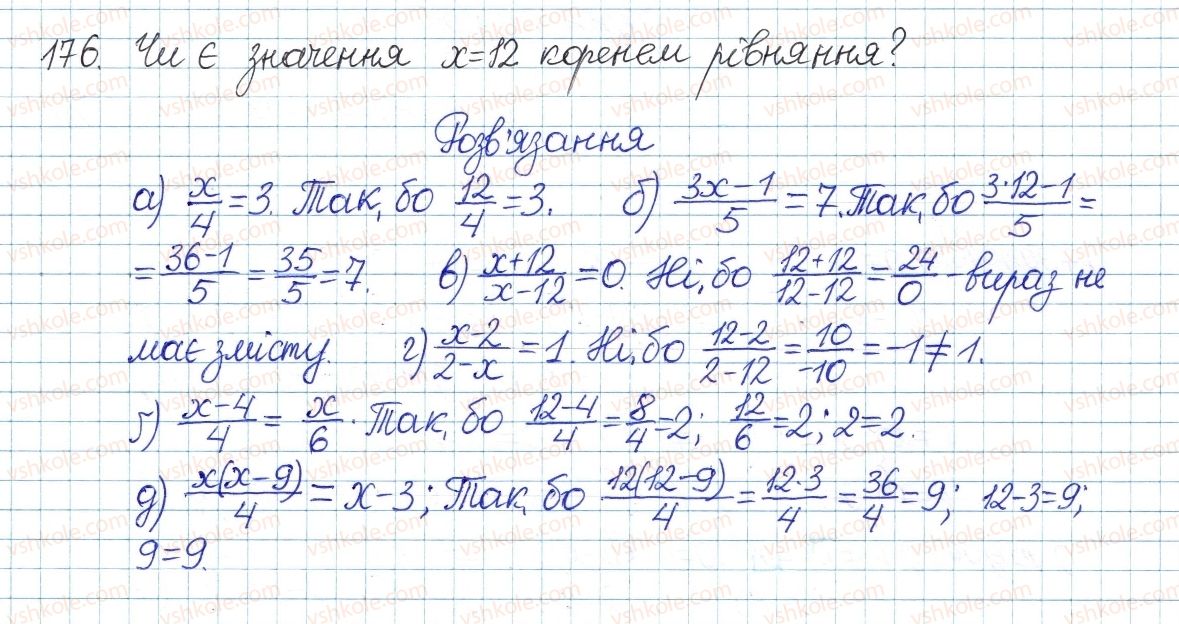 176. Чи є значення x=12 коренем рівняння?
Розв'язання
а) x/4 = 3. Так, бо 12/4 = 3. б) (3x-1)/5 = 7. Так, бо (3·12-1)/5 =
= (36-1)/5 = 35/5 = 7. в) (x+12)/(x-12) = 0. Ні, бо (12+12)/(12-12) = 24/0 - вираз не
має змісту. г) (x-2)/(2-x) = 1. Ні, бо (12-2)/(2-12) = 10/-10 = -1 ≠ 1.
ґ) (x-4)/4 = x/6. Так, бо (12-4)/4 = 8/4 = 2; 12/6 = 2; 2=2.
д) x(x-9)/4 = x-3; Так, бо 12(12-9)/4 = 12·3/4 = 36/4 = 9; 12-3=9;
9=9.